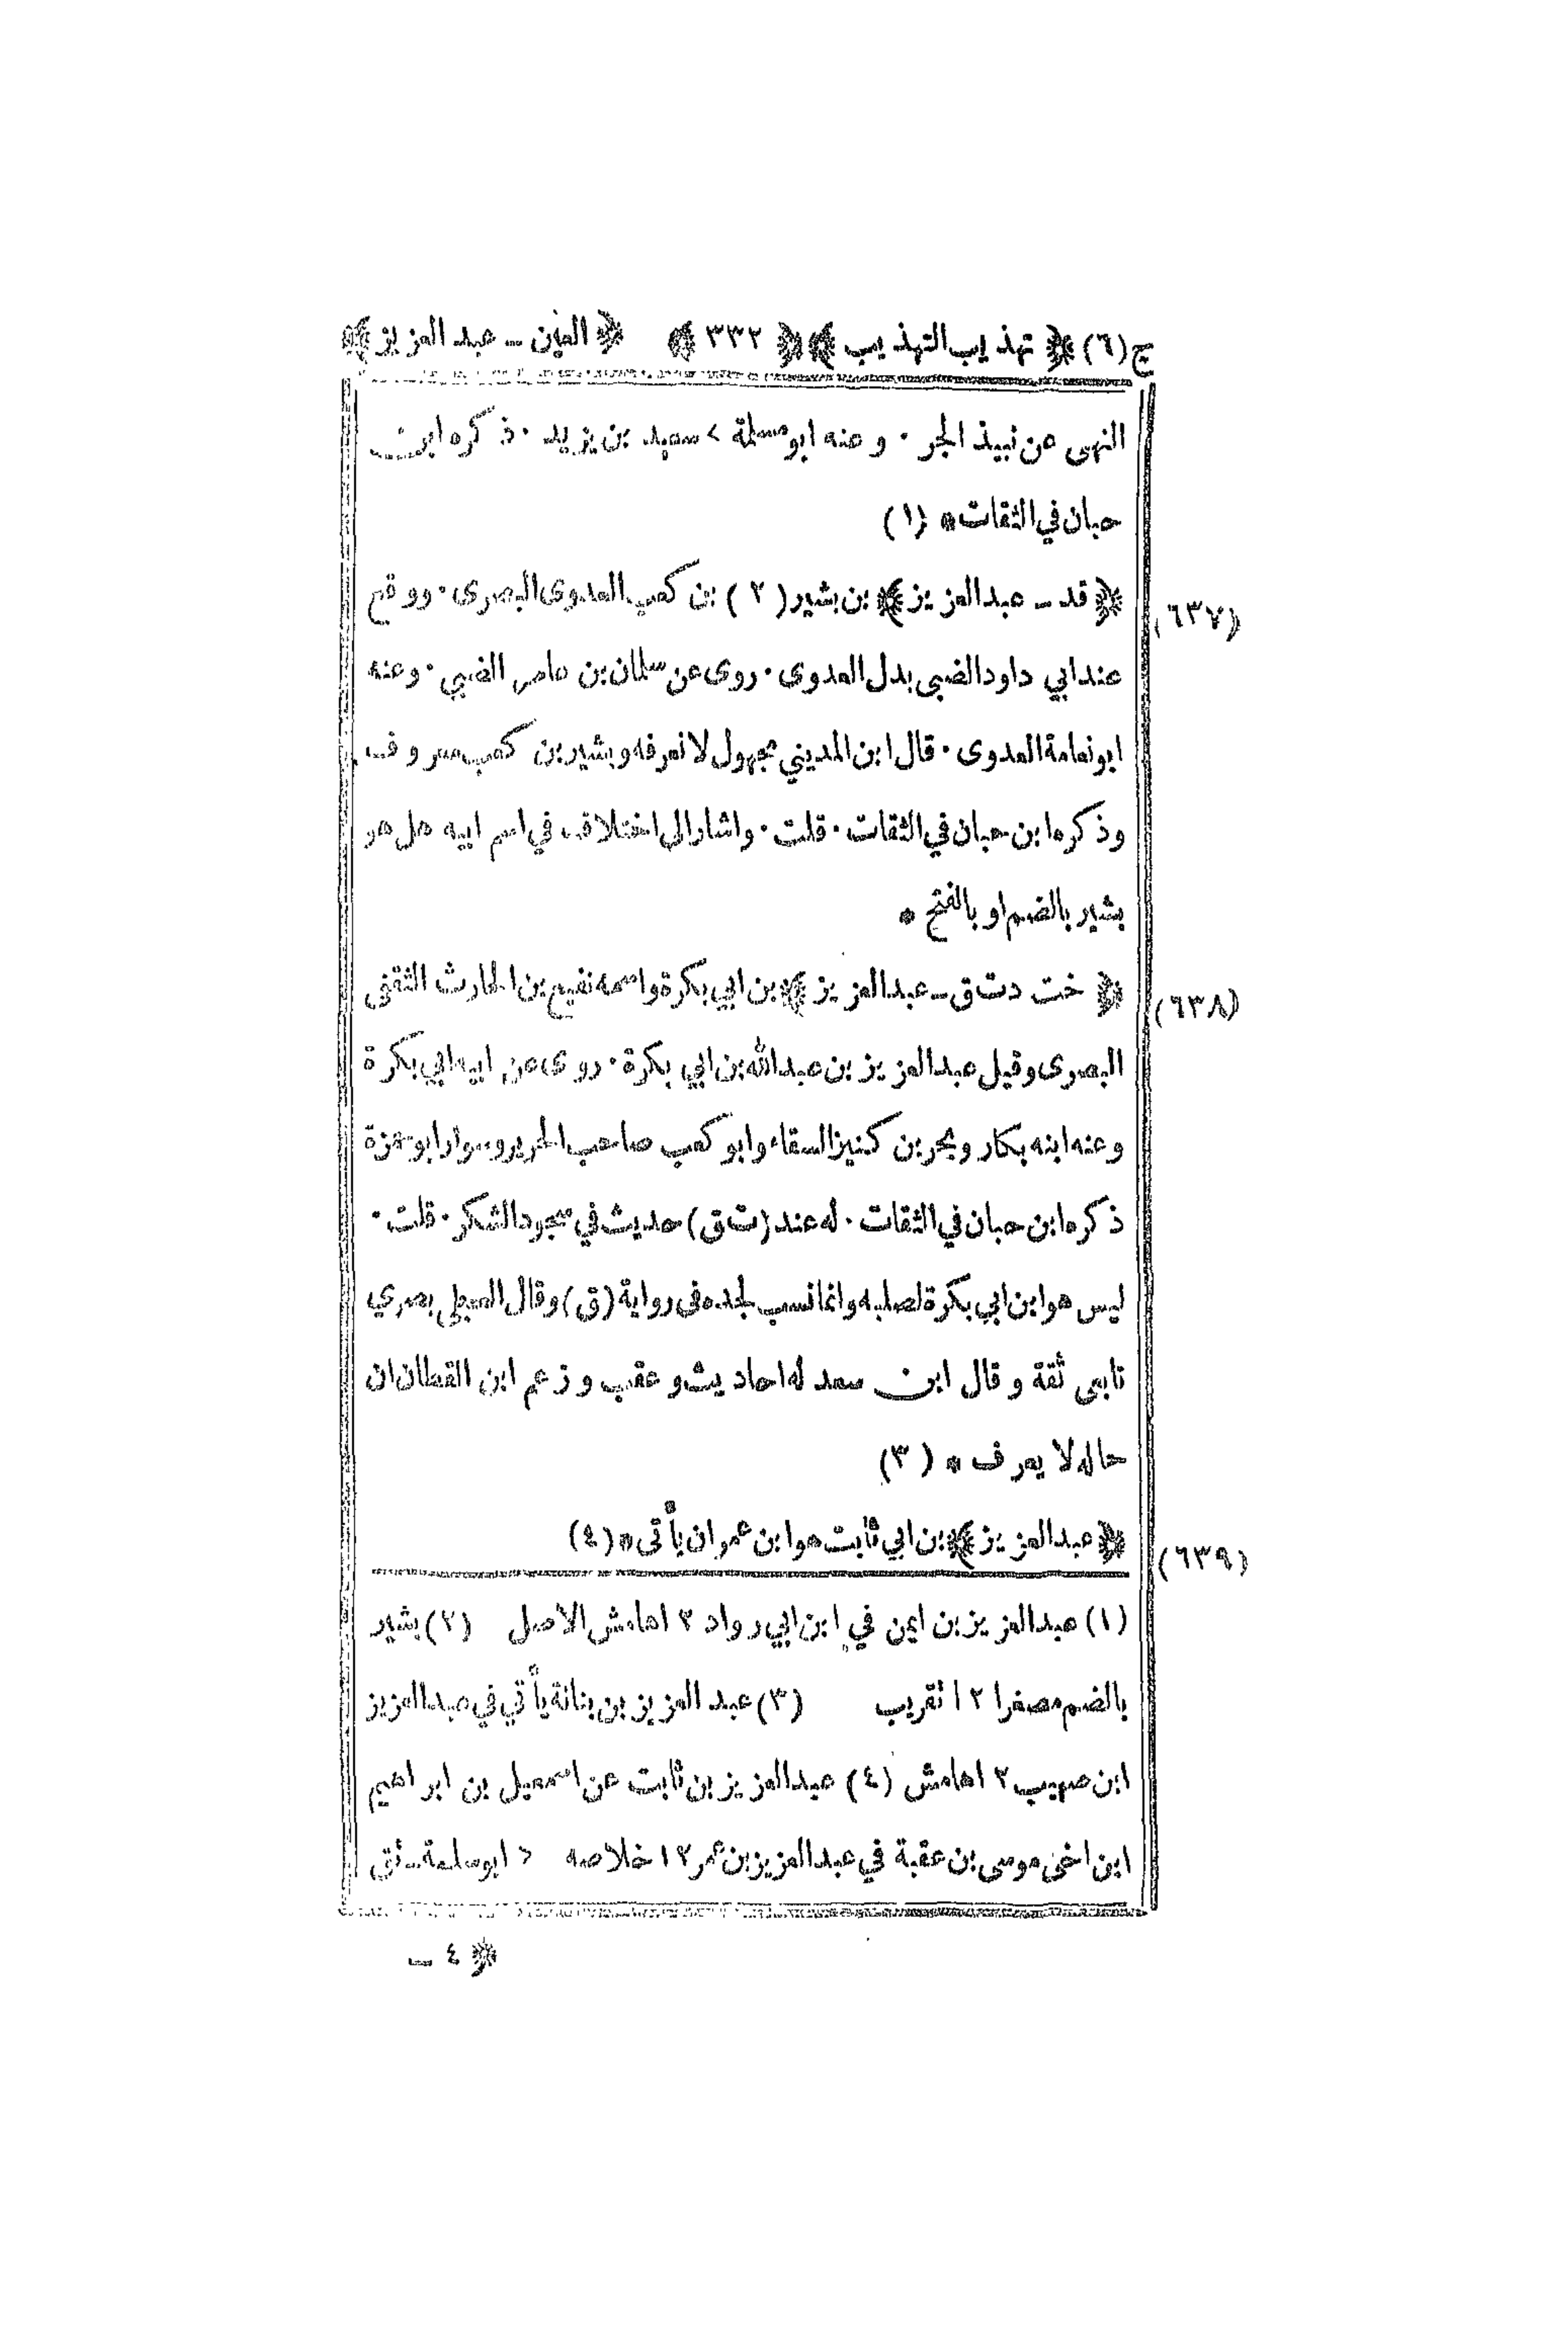 ج (٦) ﴿ تهذيب التهذيب ﴾ ﴿ ٣٣٢ ﴾ ﴿ العين ـ عبد العزيز ﴾
النهى عن نبيذ الجر ٠ و عنه ابو مسلمة > سعيد بن يزيد ٠ ذكره ابن
حبان في الثقات * (١)
(٦٣٧) ﴿ قد ـ عبد العزيز ﴾ بن بشير (٢) بن كعب العدوى البصرى ٠ ووقع
عند ابي داود الضبى بدل العدوى ٠ روى عن سلمان بن عامر الضبي ٠ وعنه
ابو نعامة العدوى ٠ قال ابن المديني مجهول لا نعرفه و بشير بن كعب معروف
وذكره ابن حبان في الثقات ٠ قلت ٠ واشار الى اختلاف في اسم ابيه هل هو
بشير بالضم او بالفتح *
(٦٣٨) ﴿ خت د ت ق ـ عبد العزيز ﴾ بن ابي بكرة واسمه نفيع بن الحارث الثقفى
البصرى وقيل عبد العزيز بن عبد الله بن ابي بكرة ٠ روى عن ابيه ابي بكرة
وعنه ابنه بكار وبحر بن كنيز السقاء وابو كعب صاحب الحرير وسوار ابو حمزة
ذكره ابن حبان في الثقات ٠ له عند (ت ق) حديث في سجود الشكر ٠ قلت ٠
ليس هو ابن ابي بكرة لصلبه وانما نسب لجده فى رواية (ق) وقال العجلي بصري
تابعى ثقة و قال ابن سعد له احاديث و عقب و زعم ابن القطان ان
حاله لا يعرف * (٣)
(٦٣٩) ﴿ عبد العزيز ﴾ بن ابي ثابت هو ابن عمران يأتى * (٤)
(١) عبد العزيز بن ايمن في ابن ابي رواد ١٢ هامش الاصل (٢) بشير
بالضم مصغرا ١٢ تقريب (٣) عبد العزيز بن بنانة يأتي في عبد العزيز
ابن صهيب ١٢ هامش (٤) عبد العزيز بن ثابت عن اسمعيل بن ابراهيم
ابن اخى موسى بن عقبة في عبد العزيز بن عمر ١٢ خلاصه > ابو سلمة ـ تق
﴿ ٤ ـ